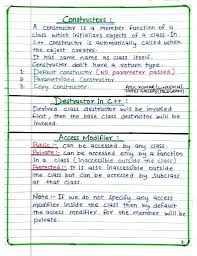 Constructors :
A constructor is a member function of a
class which initializes objects of a class. In
C++ constructor is automatically called when
the object creates.
It has same name as class itself.
Constructor don't have a return type.
1. Default constructor (No parameter passed)
2. Parametrized Constructor
3. Copy Constructor
Destructor in C++ :
Derived class destructor will be invoked
first, then the base class destructor will be
invoked.
Access Modifier :
Public :- can be accessed by any class.
Private :- can be accessed only by a function
in a class (inaccessible outside the class)
Protected :- It is also inaccessible outside
the class but can be accessed by subclass
of that class.
Note :- If we do not specify any access
modifier inside the class then by default
the access modifier for the member will be
private.